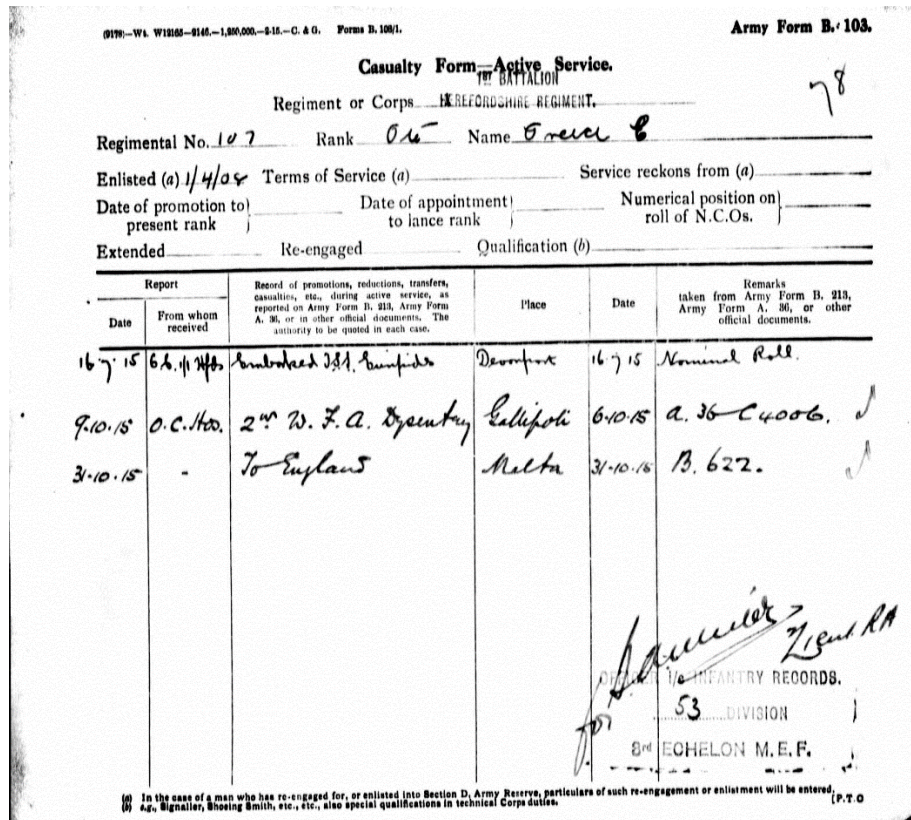 (9178)—Wt. W12165—9146.—1,250,000.—2-15.—C. & G. Forms B. 103/1.
Army Form B. 103.
Casualty Form—Active Service.
1ST BATTALION
78
Regiment or Corps HEREFORDSHIRE REGIMENT.
Regimental No. 107 Rank Pte Name C
Enlisted (a) 1/4/08 Terms of Service (a) Service reckons from (a)
Date of promotion to present rank } Date of appointment to lance rank } Numerical position on roll of N.C.Os. }
Extended Re-engaged Qualification (b)
Report
Date
From whom received
Record of promotions, reductions, transfers, casualties, etc., during active service, as reported on Army Form B. 213, Army Form A. 36, or in other official documents. The authority to be quoted in each case.
Place
Date
Remarks
taken from Army Form B. 213, Army Form A. 36, or other official documents.
16 7 15 1/1 Hfds Embarked Devonport 16 7 15 Nominal Roll.
9.10.15 O.C. 2nd W. F. A. Dysentery Gallipoli 6.10.15 A. 36 C4006.
31.10.15 - To England Malta 31.10.15 B. 622.
for Lieut RA
OFFICER I/c INFANTRY RECORDS.
53 DIVISION
3rd ECHELON M.E.F.
(a) In the case of a man who has re-engaged for, or enlisted into Section D, Army Reserve, particulars of such re-engagement or enlistment will be entered.
(b) e.g., Signaller, Shoeing Smith, etc., etc., also special qualifications in technical Corps duties.
[P.T.O